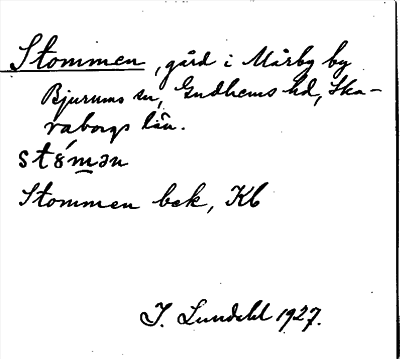 Stommen, gård i Mårby by
Bjurums sn, Gudhems hd, Ska-
raborgs län.
stómən
Stommen bek, Kb
J. Lundahl 1927.